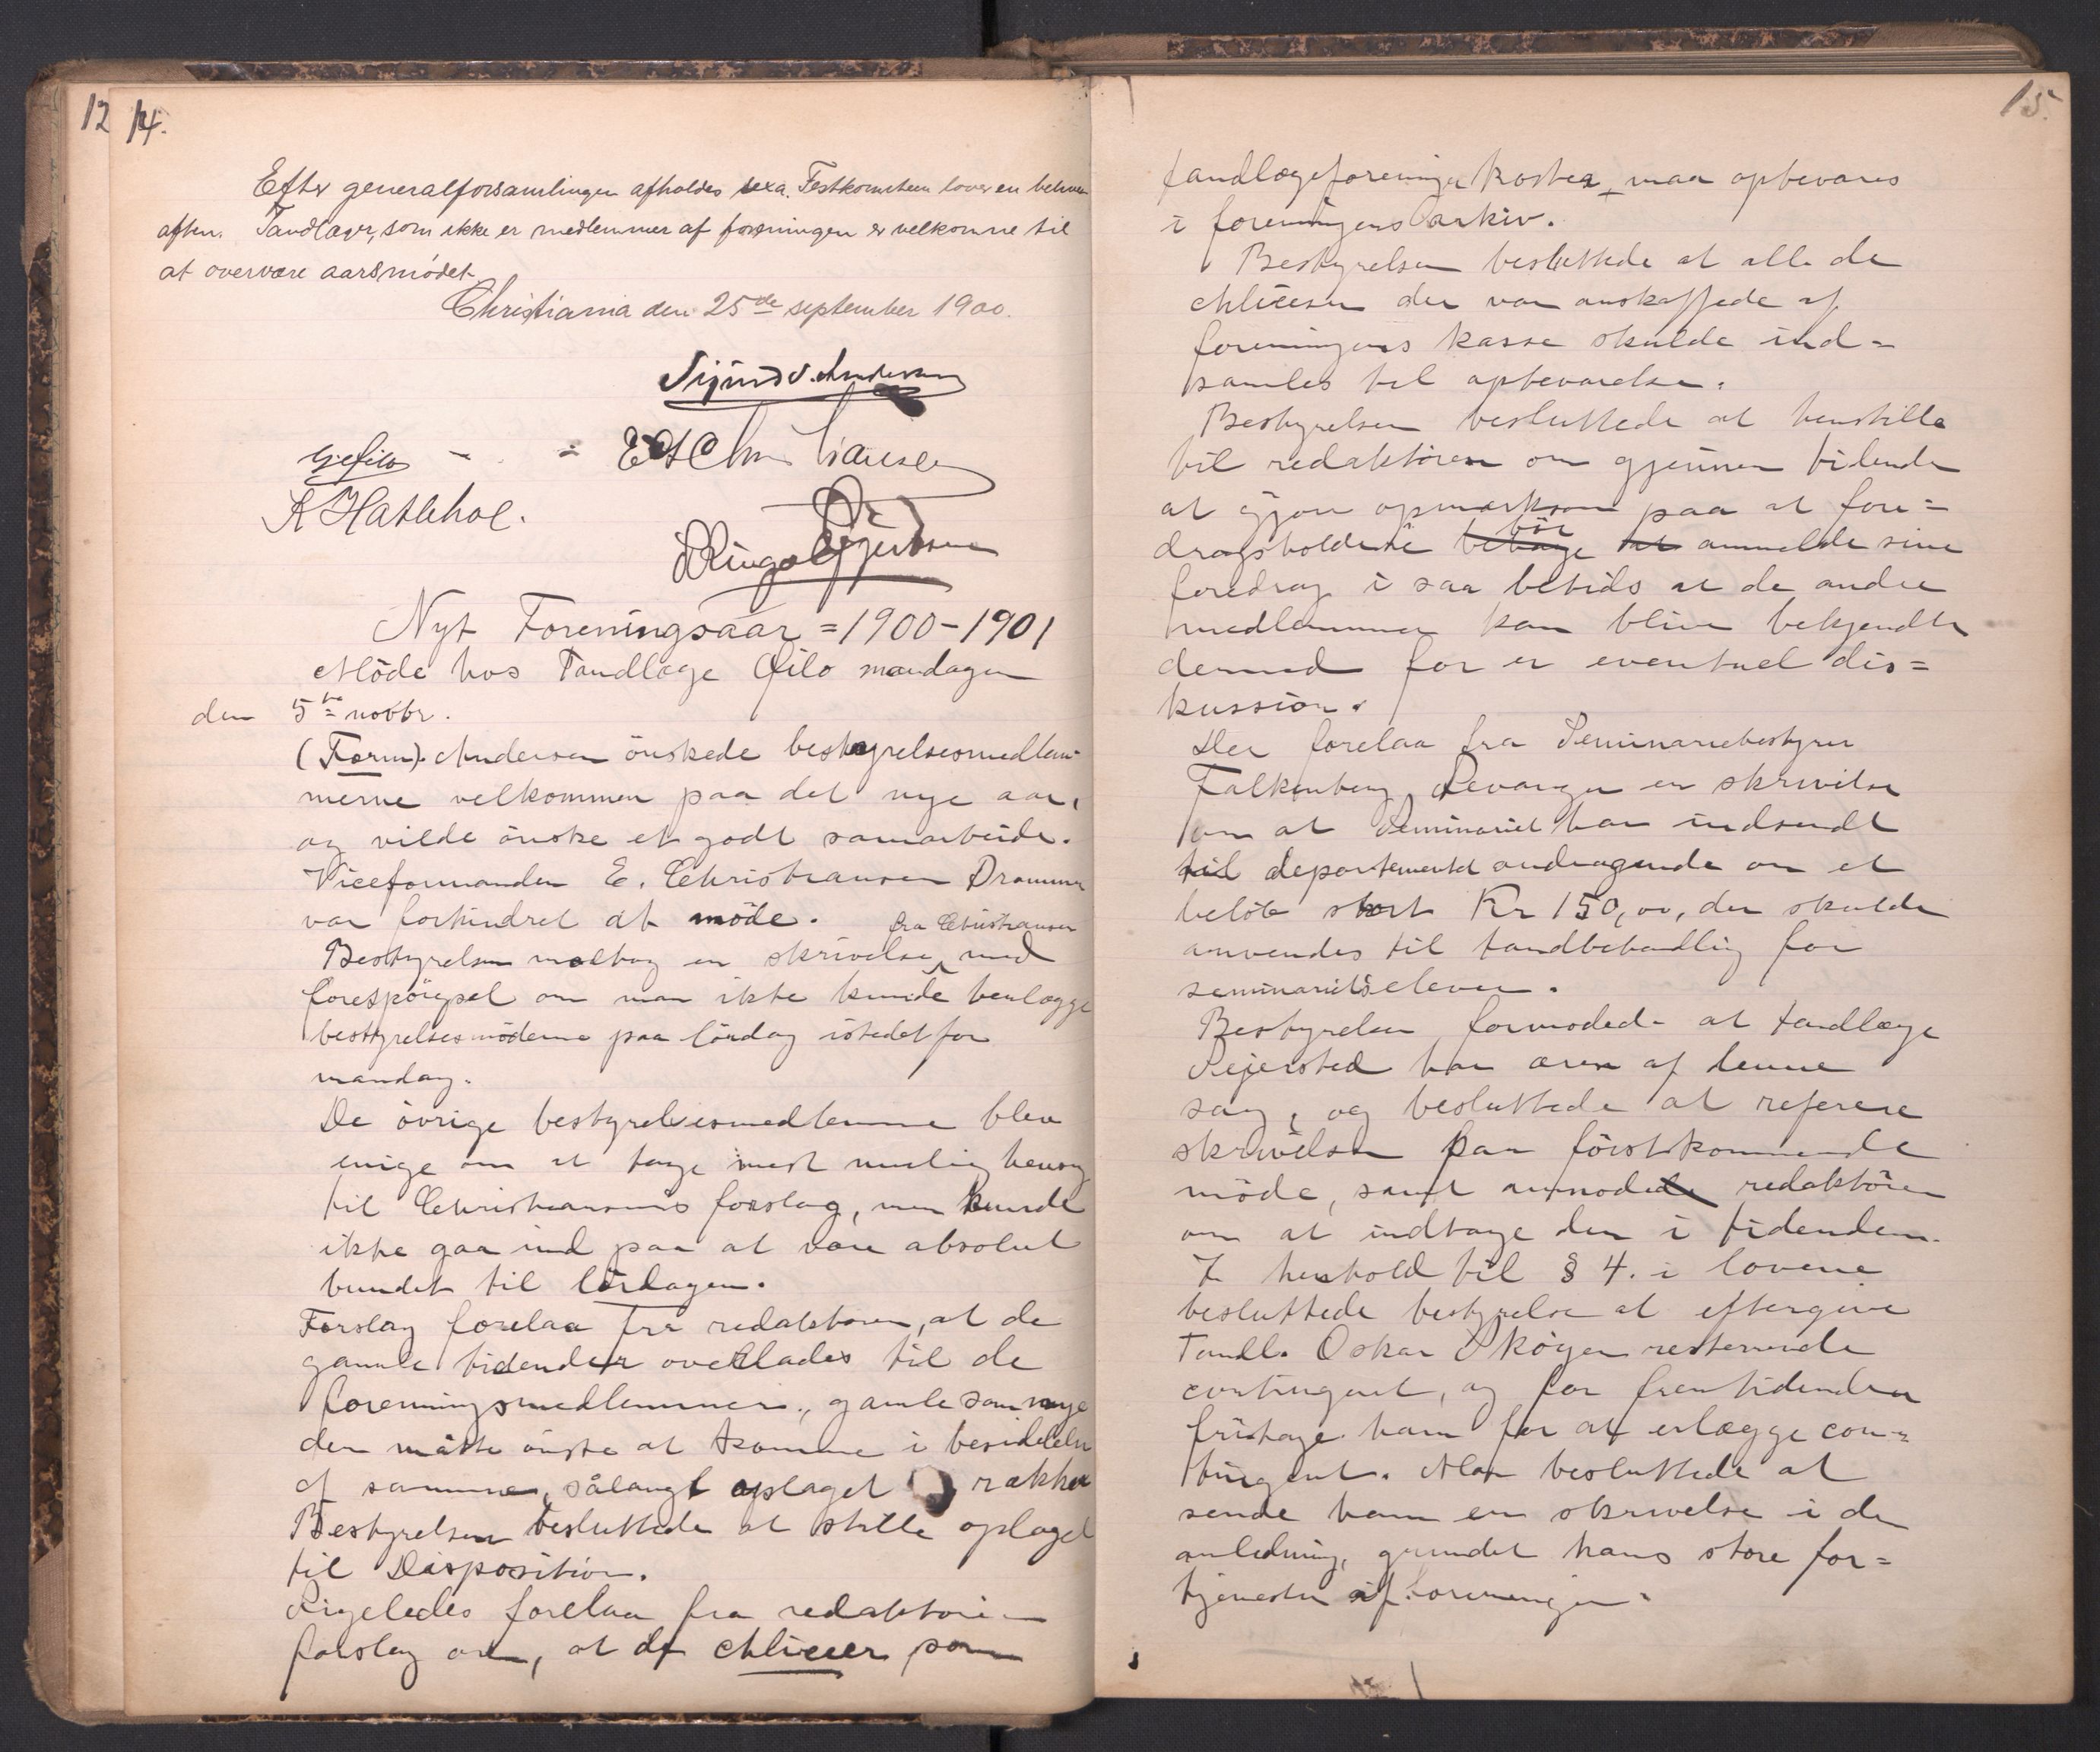 12 14.
Efter generalforsamlingen afholdes sexa. Festkomiteen lover en
aften. Tandlæger, som ikke er medlemmer af foreningen er velkomne til
at overvære aarsmödet.
Christiania den 25de september 1900.
Sigurd S. Andersen
E Christiansen
K Hatlehol.
Nyt Foreningsaar = 1900-1901
Möde hos Tandlæge Qvilo mandagen
den 5te novbr.
(Form). Andersen önskede bestyrelsesmedlem-
merne velkommen paa det nye aar,
og vilde önske et godt samarbeide.
Viceformanden E. Christiansen Drammen
var forhindret at möde.
fra Christiansen
Bestyrelsen modtog en skrivelse med
forespörgsel om man ikke kunde henlægge
bestyrelsesmöderne paa lördag istedetfor
mandag.
De övrige bestyrelsesmedlemmer blev
enige om at tage mest mulig hensyn
til Christiansens forslag, men kunde
ikke gaa ind paa at være absolut
bundet til lördagen.
Forslag forelaa fra redaktören, at de
gamle tidender overlades til de
foreningsmedlemmer, gamle som nye
der måtte önske at komme i besiddelse
af samme, sålangt oplaget rækker
Bestyrelsen besluttede at stille oplaget
til Disposition.
Ligeledes forelaa fra redaktören
forslag om, at de chlicèer som
15.
tandlægeforeningen koster maa opbevares
i foreningens arkiv.
Bestyrelsen besluttede at alle de
chlicèer der var anskaffede af
foreningens kasse skulde ind=
samles til opbevarelse.
Bestyrelsen besluttede at henstille
til redaktören om gjennem tidende
at gjöre opmærksom paa at fore=
dragsholderne bör anmelde sine
foredrag i saa betids at de andre
medlemmer kan blive bekjendte
dermed for er eventuel dis=
kussion.
Der forelaa fra Seminariebestyrer
Falkenberg, Levanger en skrivelse
om at Seminariet har indsendt
til departementet andragende om et
belöb stort Kr 150,00, der skulde
anvendes til tandbehandling for
seminariets elever.
Bestyrelsen formodede at tandlæge
Rejersted har æren af denne
sag, og besluttede at referere
skrivelsen paa förstkommende
möde, samt anmode redaktören
om at indtage den i tidenden.
I henhold til § 4. i lovene
besluttede bestyrelse at eftergive
Tandl. Oskar Skögen resterende
contingent, og for fremtidenden
fritage ham for at erlægge con=
tingent. Man besluttede at
sende ham en skrivelse i den
anledning, grundet hans store for=
tjenester af foreningen.